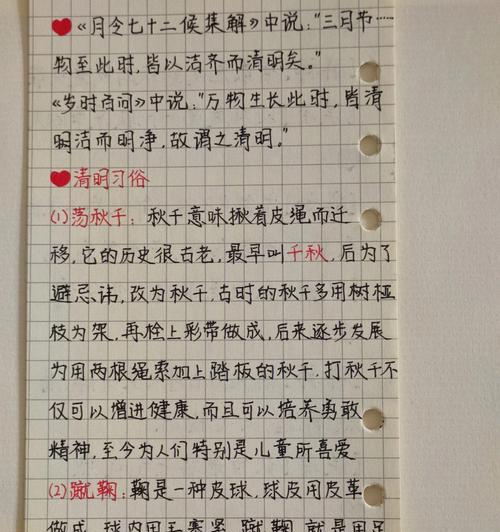 ❤《月令七十二候集解》中说:"三月节……
物至此时,皆以洁齐而清明矣。"
《岁时百问》中说:"万物生长此时,皆清
明洁而明净,故谓之清明。"
❤清明习俗
(1)荡秋千:秋千意味揪着皮绳而迁
移,它的历史很古老,最早叫千秋,后为了
避忌讳,改为秋千,古时的秋千多用树桠
枝为架,再栓上彩带做成,后来逐步发展
为用两根绳索加上踏板的秋千.打秋千不
仅可以增进健康,而且可以培养勇敢
精神,至今为人们特别是儿童所喜爱
(2)蹴鞠:鞠是一种皮球,球皮用皮革
做成,球内用毛塞紧,蹴鞠,就是用足